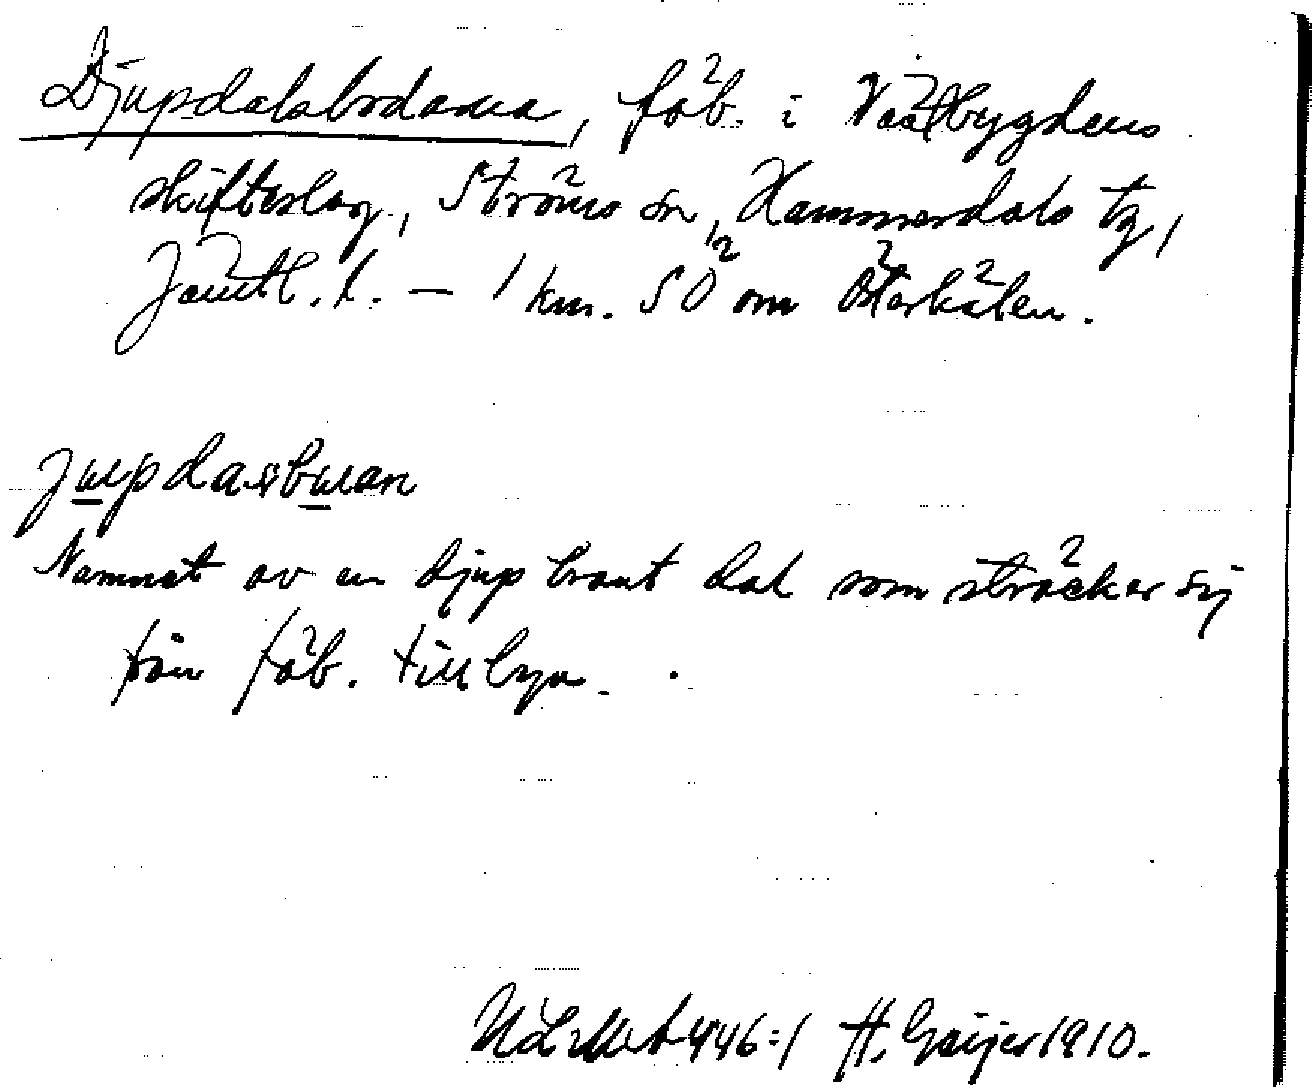 Djupdalsbodarna, fäb. i Västbygdens
skifteslag, Ströms sn, Hammerdals tg,
Jämtl. l. — 1 km. SÖ om Österkälen.
jupdasbuan
Namnet av en djup brant dal som sträcker sig
från fäb. till byn.
446:1 H. Geijer 1910.